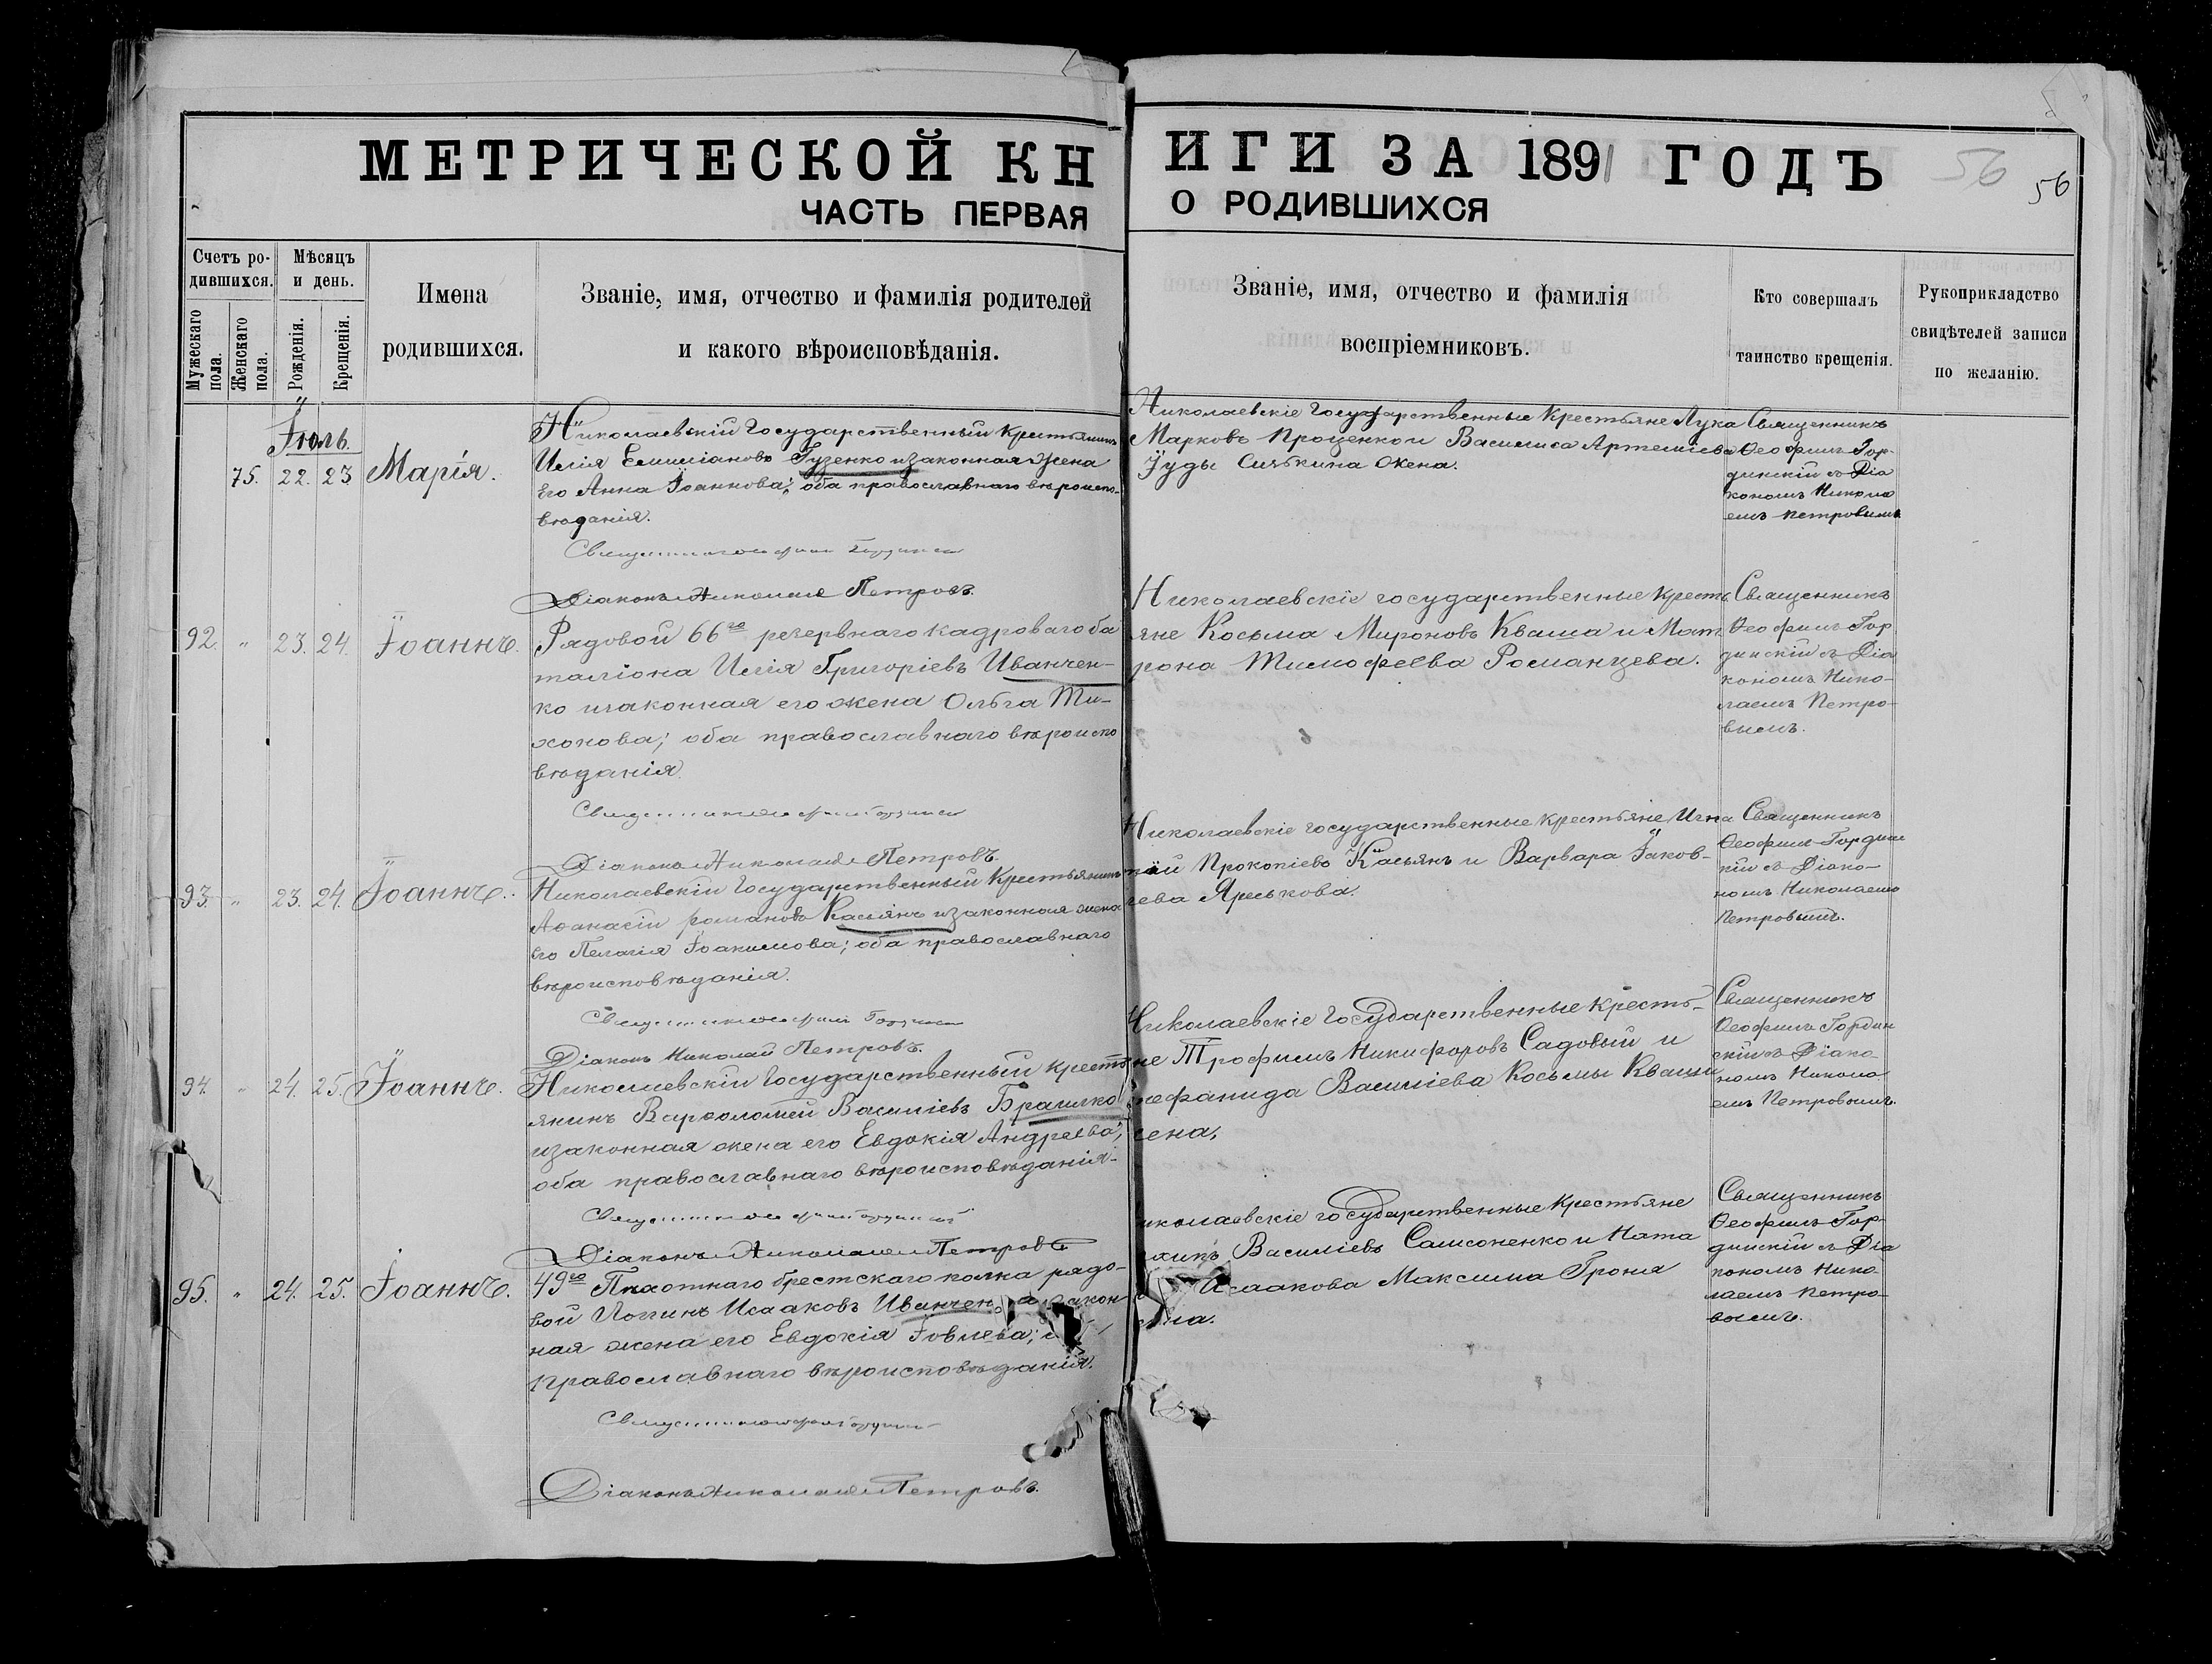 МЕТРИЧЕСКОЙ КНИГИ ЗА 1891 ГОДЪ
56
56
ЧАСТЬ ПЕРВАЯ О РОДИВШИХСЯ
Счетъ ро-
дившихся.
Мужескаго
пола.
Женскаго
пола.
Мѣсяцъ
и день.
Рожденія.
Крещенія.
Имена
родившихся.
Званіе, имя, отчество и фамилія родителей
и какого вѣроисповѣданія.
Званіе, имя, отчество и фамилія
воспріемниковъ.
Кто совершалъ
таинство крещенія.
Рукоприкладство
свидѣтелей записи
по желанію.
Іюль.
75. 22. 23 Марія.
Николаевскій Государственный крестьянинъ
Илія Емиліановъ Гузенко и законная жена
его Анна Іоаннова; оба православнаго вѣроиспо-
вѣданія.
Діаконъ Николай Петровъ.
Николаевскіе государственные крестьяне Лука
Марковъ Проценко и Василиса Артеміева
Іуды Сичкина жена.
Священникъ
Ѳеофилъ Гор-
динскій съ Діа
кономъ Никола
емъ Петровымъ
92. " 23. 24. Іоаннъ.
Рядовой 66го резервнаго кадроваго ба
таліона Илія Григоріевъ Иванчен-
ко и законная его жена Ольга Ти-
хонова; оба православнаго вѣроиспо
вѣданія.
Діаконъ Николай Петровъ.
Николаевскіе государственные кресть
яне Косьма Мироновъ Кваша и Мат
рона Тимофеева Романцева.
Священникъ
Ѳеофилъ Гор
динскій съ Діа
кономъ Нико-
лаемъ Петро-
вымъ.
93. " 23. 24. Іоаннъ.
Николаевскій Государственный Крестьянинъ
Аѳанасій Романовъ Касьянъ и законная жена
его Пелагія Іоакимова; оба православнаго
вѣроисповѣданія.
Діаконъ Николай Петровъ.
Николаевскіе государственные крестьяне Игна
тій Прокопіевъ Касьянъ и Варвара Іаков-
лева Яреськова.
Священникъ
Ѳеофилъ Гордин
скій съ Діако-
номъ Николаемъ
Петровымъ.
94. " 24. 25. Іоаннъ.
Николаевскій Государственный кресть
янинъ Варѳоломей Василіевъ
и законная жена его Евдокія Андреева;
оба православнаго вѣроисповѣданія.
Николаевскіе государственные кресть-
яне Трофимъ Никифоровъ Садовый и
Василіева Косьмы Кваши
жена.
Священникъ
Ѳеофилъ Гордин
скій съ Діако
номъ Никола
емъ Петровымъ.
Діаконъ Николай Петровъ
95. " 24. 25. Іоаннъ.
49го Пѣхотнаго Брестскаго полка рядо-
вой Логгинъ Исааковъ Иванчен закон
ная жена его Евдокія Іовлева;
православнаго вѣроисповѣданія.
Діаконъ Николай Петровъ.
Николаевскіе государственные крестьяне
Василіевъ Самсоненко и Ната
Исаакова Максима Гроня
жена.
Священникъ
Ѳеофилъ Гор-
динскій съ Діа
кономъ Нико-
лаемъ Петро-
вымъ.